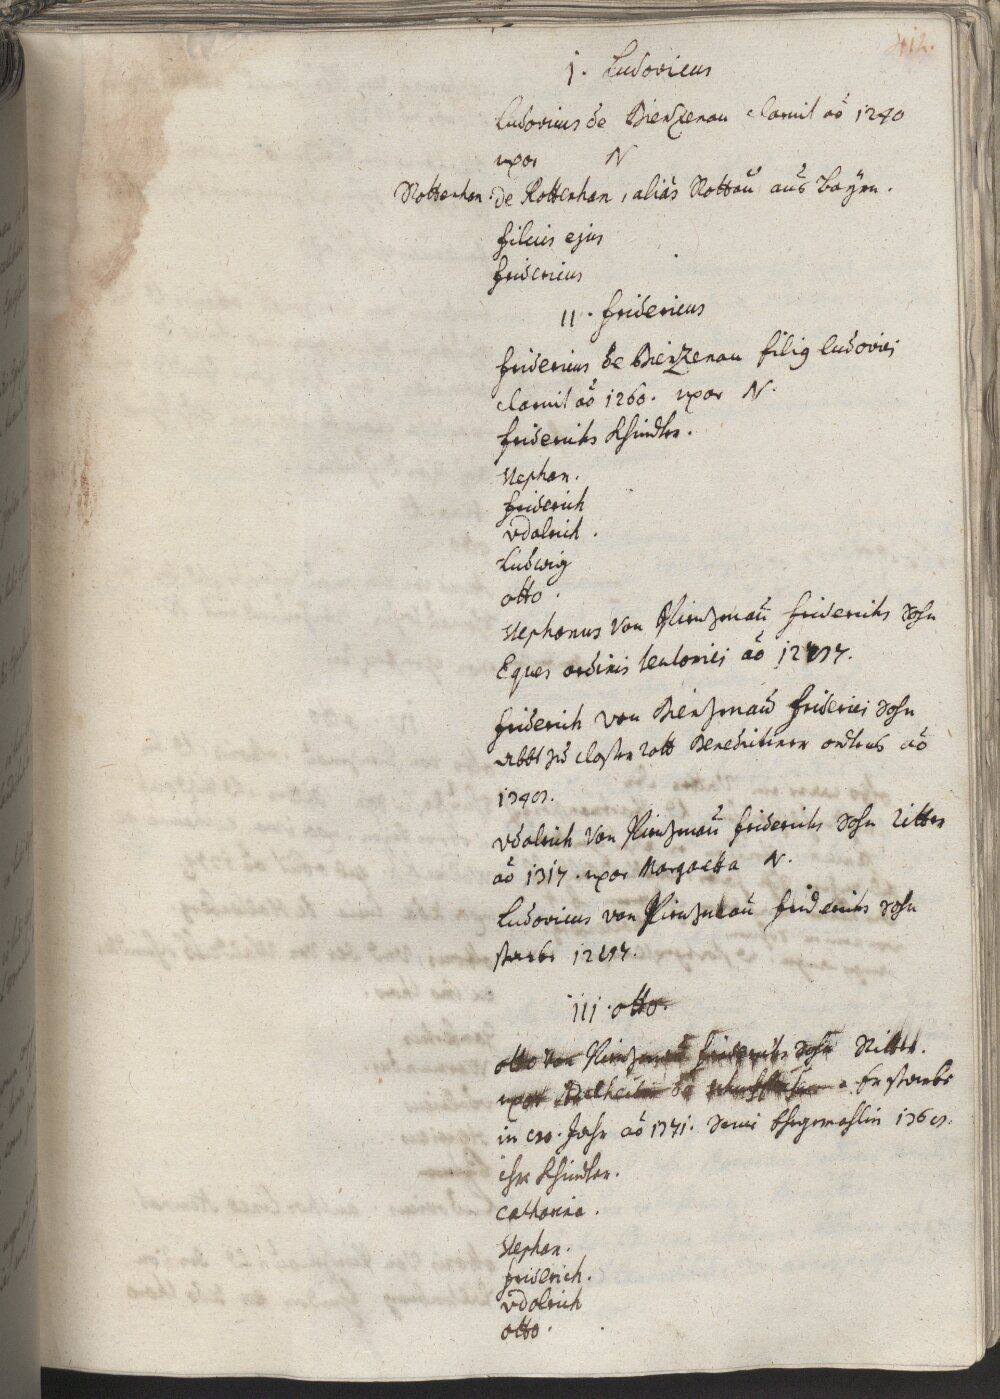 412.
I. Ludovicus
Ludovicus de Bienzenau claruit aõ 1240
uxor N
Rottenhan. De Rottenhan, aliàs Rottau aus Bayrn.
filius ejus
fridericus
II. fridericus
fridericus de Bienzenau filig Ludovici
claruit aõ 1260. uxor N.
friderichs Khindter.
Stephan.
friderich
vdalrich.
Ludwig
otto.
Stephanus von Pienzenau friderichs Sohn
Eques ordinis teutonici aõ
friderich von Bienzenau friderici Sohn
Abbt zu closter Rott Benedictiner ordens aõ
vdalrich von Pienzenau friderichs Sohn Ritter
aõ 1317. uxor Margaetta N.
Ludovicus von Pienzenau friderichs Sohn
starbe
III. otto.
otto von Pienzenau friderichs Sohn Ritter.
uxor Adelheid de . Er starbe
in Jahr aõ 1341. Seine Ehegemahlin
ihre Khindter.
Catharina.
Stephan.
friderich.
vdalrich
otto.